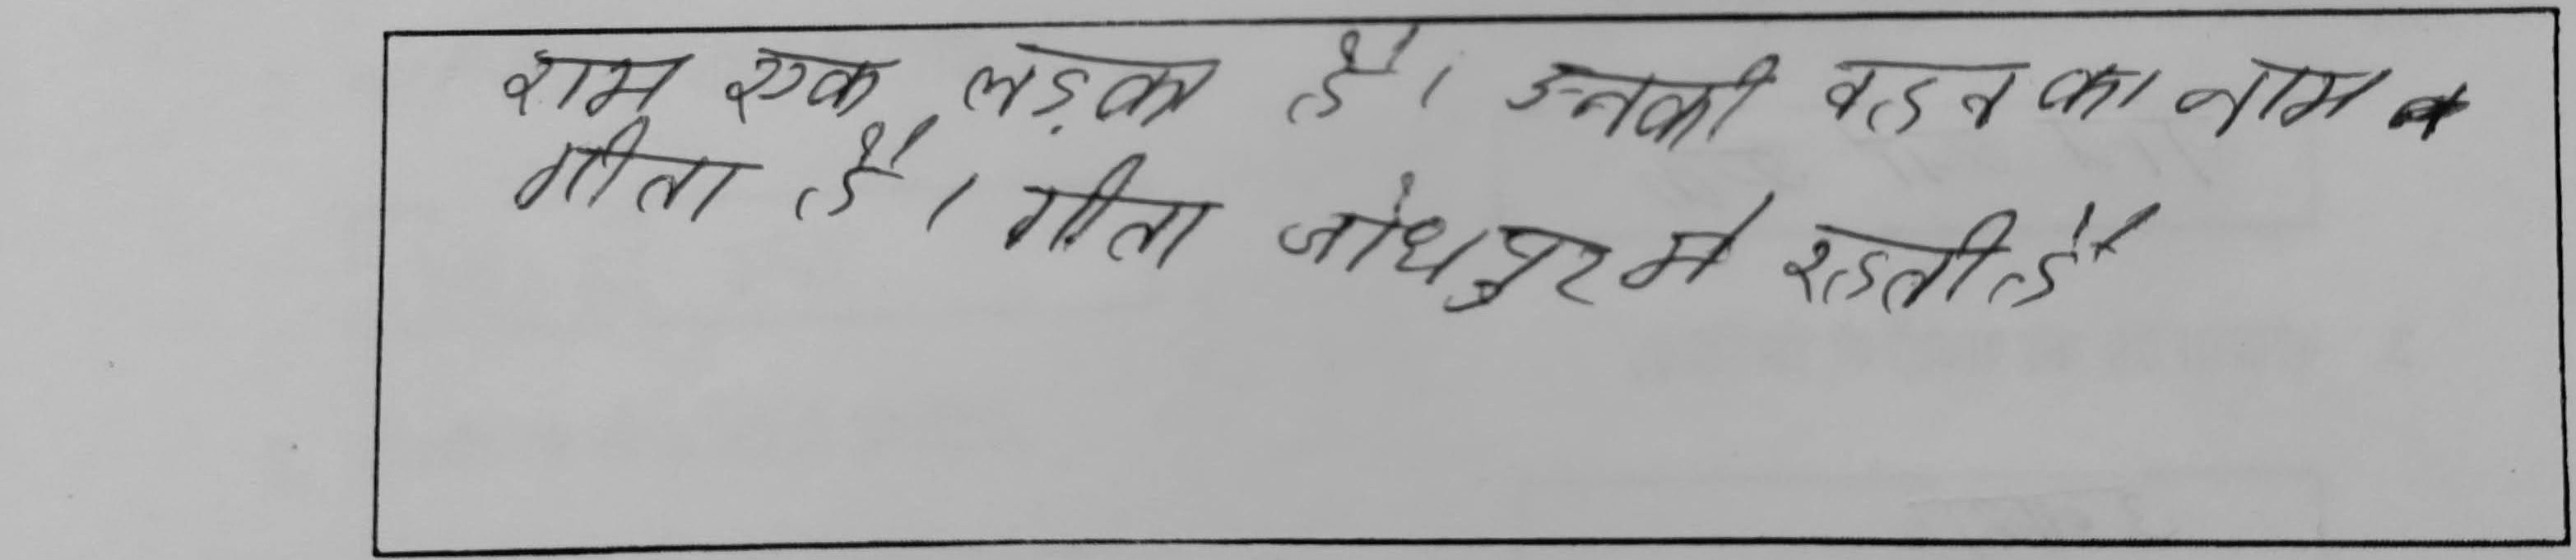 राम एक लड़का है। उनकी बहन का नाम
गीता है। गीता जोधपुर में रहती है